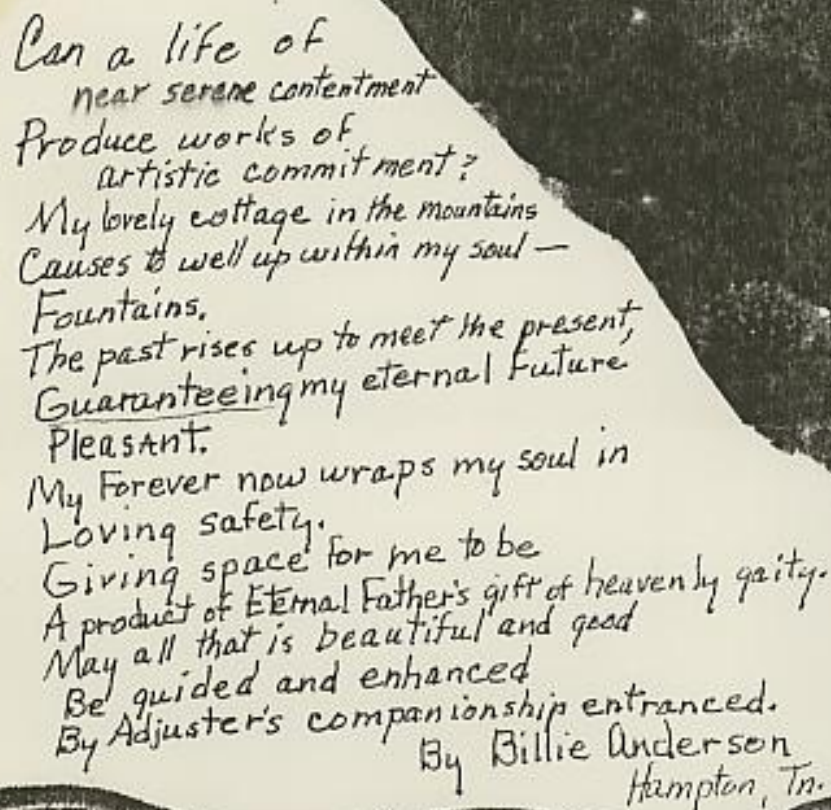 Can a life of
near serene contentment
Produce works of
artistic commitment?
My lovely cottage in the mountains
Causes to well up within my soul —
Fountains.
The past rises up to meet the present,
Guaranteeing my eternal Future
Pleasant.
My Forever now wraps my soul in
Loving safety.
Giving space for me to be
A product of Eternal Father's gift of heavenly gaity.
May all that is beautiful and good
Be guided and enhanced
By Adjuster's companionship entranced.
By Billie Anderson
Hampton, Tn.